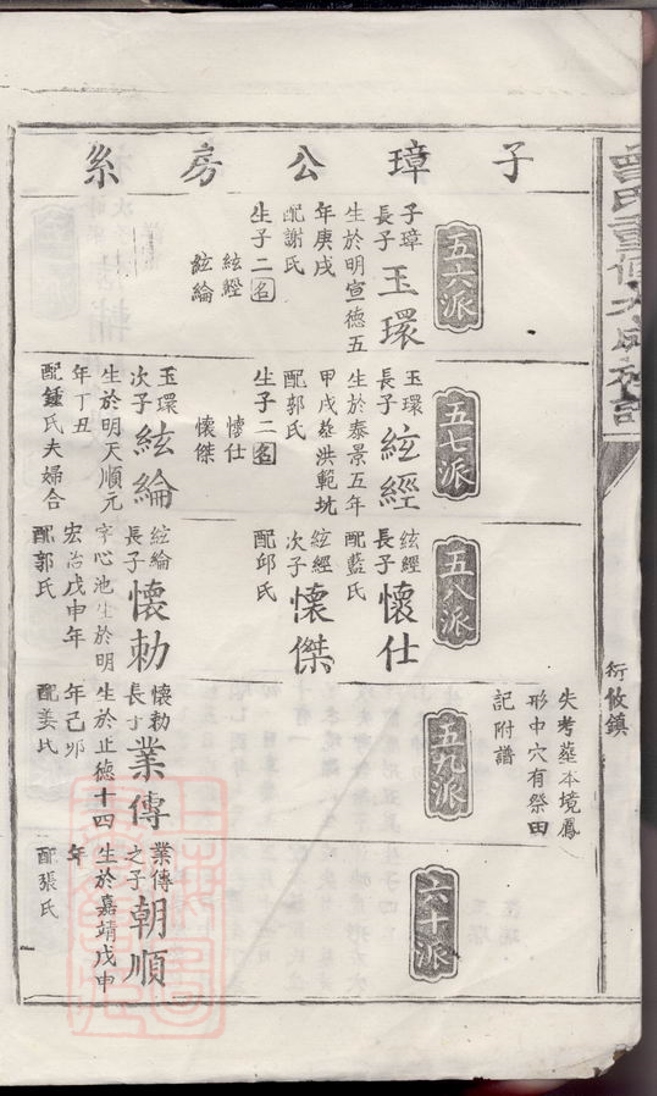 子璋公房系
曾氏重修大成族譜
衍攸鎮
五六派
子璋
長子
玉環
生於明宣德五
年庚戌
配謝氏
生子二名
絃經
絃綸
五七派
玉環
長子
絃經
生於泰景五年
甲戌塟洪範坑
配郭氏
生子二名
懷仕
懷傑
玉環
次子
絃綸
生於明天順元
年丁丑
配鍾氏夫婦合
五八派
絃經
長子
懷仕
配藍氏
絃經
次子
懷傑
配邱氏
絃綸
長子
懷勅
字心池生於明
宏治戊申年
配郭氏
失考塟本境鳳
形中穴有祭田
記附譜
五九派
懷勅
長子
業傳
生於正德十四
年己卯
配姜氏
六十派
業傳
之子
朝順
生於嘉靖戊申
年
配張氏